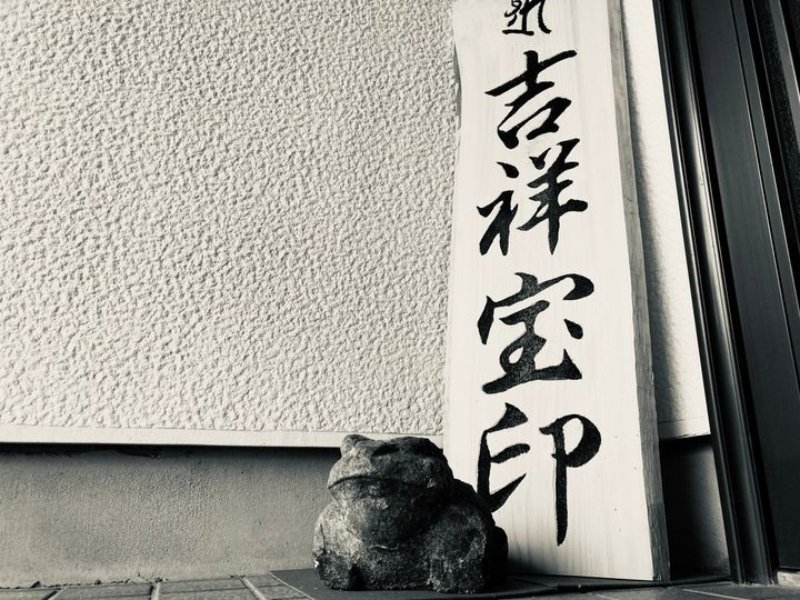 吉祥宝印